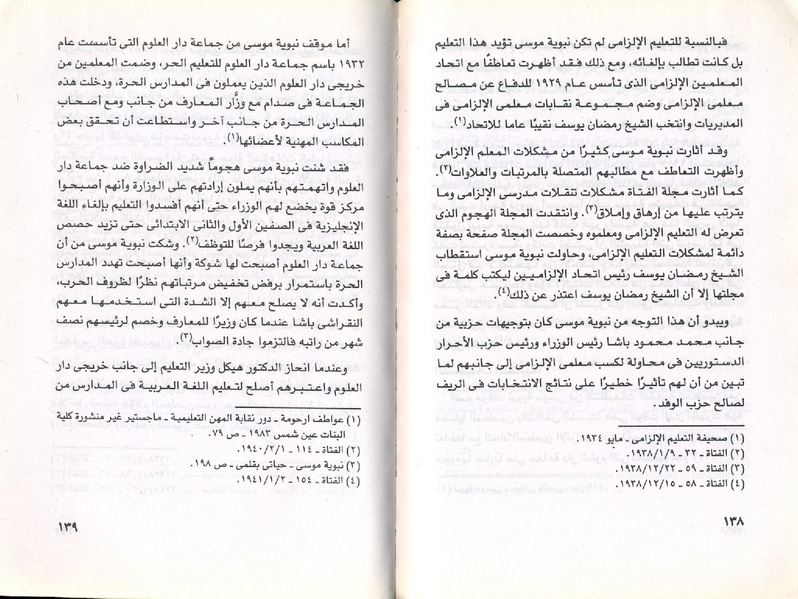 فبالنسبة للتعليم الإلزامى لم تكن نبوية موسى تؤيد هذا التعليم
بل كانت تطالب بإلغائه، ومع ذلك فقد أظهرت تعاطفًا مع اتحاد
المعلمين الإلزامى الذى تأسس عام ١٩٢٩ للدفاع عن مصالح
معلمى الإلزامى وضم مجموعة نقابات معلمى الإلزامى فى
المديريات وانتخب الشيخ رمضان يوسف نقيبًا عاما للاتحاد(١).
وقد أثارت نبوية موسى كثيرًا من مشكلات المعلم الإلزامى
وأظهرت التعاطف مع مطالبهم المتصلة بالمرتبات والعلاوات(٢).
كما أثارت مجلة الفتاة مشكلات تنقلات مدرسى الإلزامى وما
يترتب عليها من إرهاق وإملاق(٣). وانتقدت المجلة الهجوم الذى
تعرض له التعليم الإلزامى ومعلموه وخصصت المجلة صفحة بصفة
دائمة لمشكلات التعليم الإلزامى، وحاولت نبوية موسى استقطاب
الشيخ رمضان يوسف رئيس اتحاد الإلزاميين ليكتب كلمة فى
مجلتها إلا أن الشيخ رمضان يوسف اعتذر عن ذلك(٤).
ويبدو أن هذا التوجه من نبوية موسى كان بتوجيهات حزبية من
جانب محمد محمود باشا رئيس الوزراء ورئيس حزب الأحرار
الدستوريين فى محاولة لكسب معلمى الإلزامى إلى جانبهم لما
تبين من أن لهم تأثيرًا خطيرًا على نتائج الانتخابات فى الريف
لصالح حزب الوفد.
(١) صحيفة التعليم الإلزامى ـ مايو ١٩٣٤.
(٢) الفتاة ـ ٣٢ ـ ١٩٣٨/١/٩.
(٣) الفتاة ـ ٥٩ ـ ١٩٣٨/١٢/٢٢.
(٤) الفتاة ـ ٥٨ ـ ١٩٣٨/١٢/١٥.
١٣٨
أما موقف نبوية موسى من جماعة دار العلوم التى تأسست عام
١٩٣٢ باسم جماعة دار العلوم للتعليم الحر، وضمت المعلمين من
خريجى دار العلوم الذين يعملون فى المدارس الحرة، ودخلت هذه
الجماعة فى صدام مع وزَّار المعارف من جانب ومع أصحاب
المدارس الحرة من جانب آخر واستطاعت أن تحقق بعض
المكاسب المهنية لأعضائها(١).
فقد شنت نبوية موسى هجوماً شديد الضراوة ضد جماعة دار
العلوم واتهمتهم بأنهم يملون إرادتهم على الوزارة وأنهم أصبحوا
مركز قوة يخضع لهم الوزراء حتى أنهم أفسدوا التعليم بإلغاء اللغة
الإنجليزية فى الصفين الأول والثانى الابتدائى حتى تزيد حصص
اللغة العربية ويجدوا فرصًا للتوظف(٢). وشكت نبوية موسى من أن
جماعة دار العلوم أصبحت لها شوكة وأنها أصبحت تهدد المدارس
الحرة باستمرار برفض تخفيض مرتباتهم نظرًا لظروف الحرب،
وأكدت أنه لا يصلح معهم إلا الشدة التى استخدمها معهم
النقراشى باشا عندما كان وزيرًا للمعارف وخصم لرئيسهم نصف
شهر من راتبه فالتزموا جادة الصواب(٣).
وعندما انحاز الدكتور هيكل وزير التعليم إلى جانب خريجى دار
العلوم واعتبرهم أصلح لتعليم اللغة العربية فى المدارس من
(١) عواطف ارحومة ـ دور نقابة المهن التعليمية ـ ماجستير غير منشورة كلية
البنات عين شمس ١٩٨٣ ـ ص ٧٩.
(٢) الفتاة ـ ١١٤ ـ ١٩٤٠/٢/١.
(٣) نبوية موسى ـ حياتى بقلمى ـ ص ١٩٨.
(٤) الفتاة ـ ١٥٤ ـ ١٩٤١/١/٢.
١٣٩